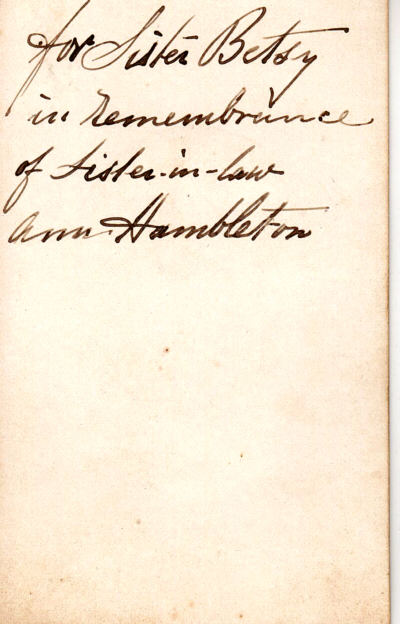 for Sister Betsy
in remembrance
of Sister-in-law
Ann Hambleton